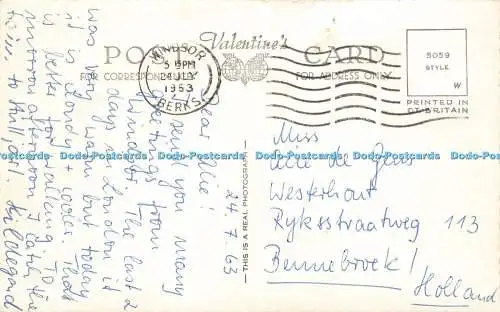 POST CARD
Valentine's
FOR CORRESPONDENCE
FOR ADDRESS ONLY
WINDSOR
5 15PM
24 JLY
1963
BERKS.
5059
STYLE
W
PRINTED IN
GT. BRITAIN
THIS IS A REAL PHOTOGRAPH
24.7.63
Dear
I send you many
greetings from
Windsor. The last 2
days in London it
was very warm but today
it is windy + cooler. That
is better for walking. To
morrow afternoon I catch the
train to Hull,
Hildegard
Miss
de
Westerhout
Ryksstraatweg 113
Bennebroek!
Holland
Dodo-Postcards Dodo-Postcards Dodo-Postcards Dodo-Postcards Dodo-Postcards